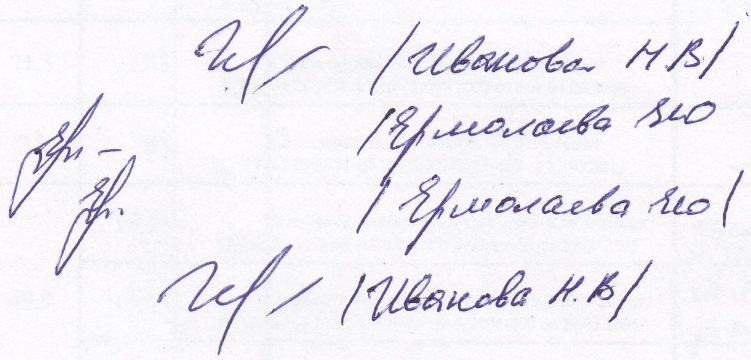 /Иванова Н В/
/Ермолаева ЕЮ
/Ермолаева ЕЮ/
/Иванова Н.В/